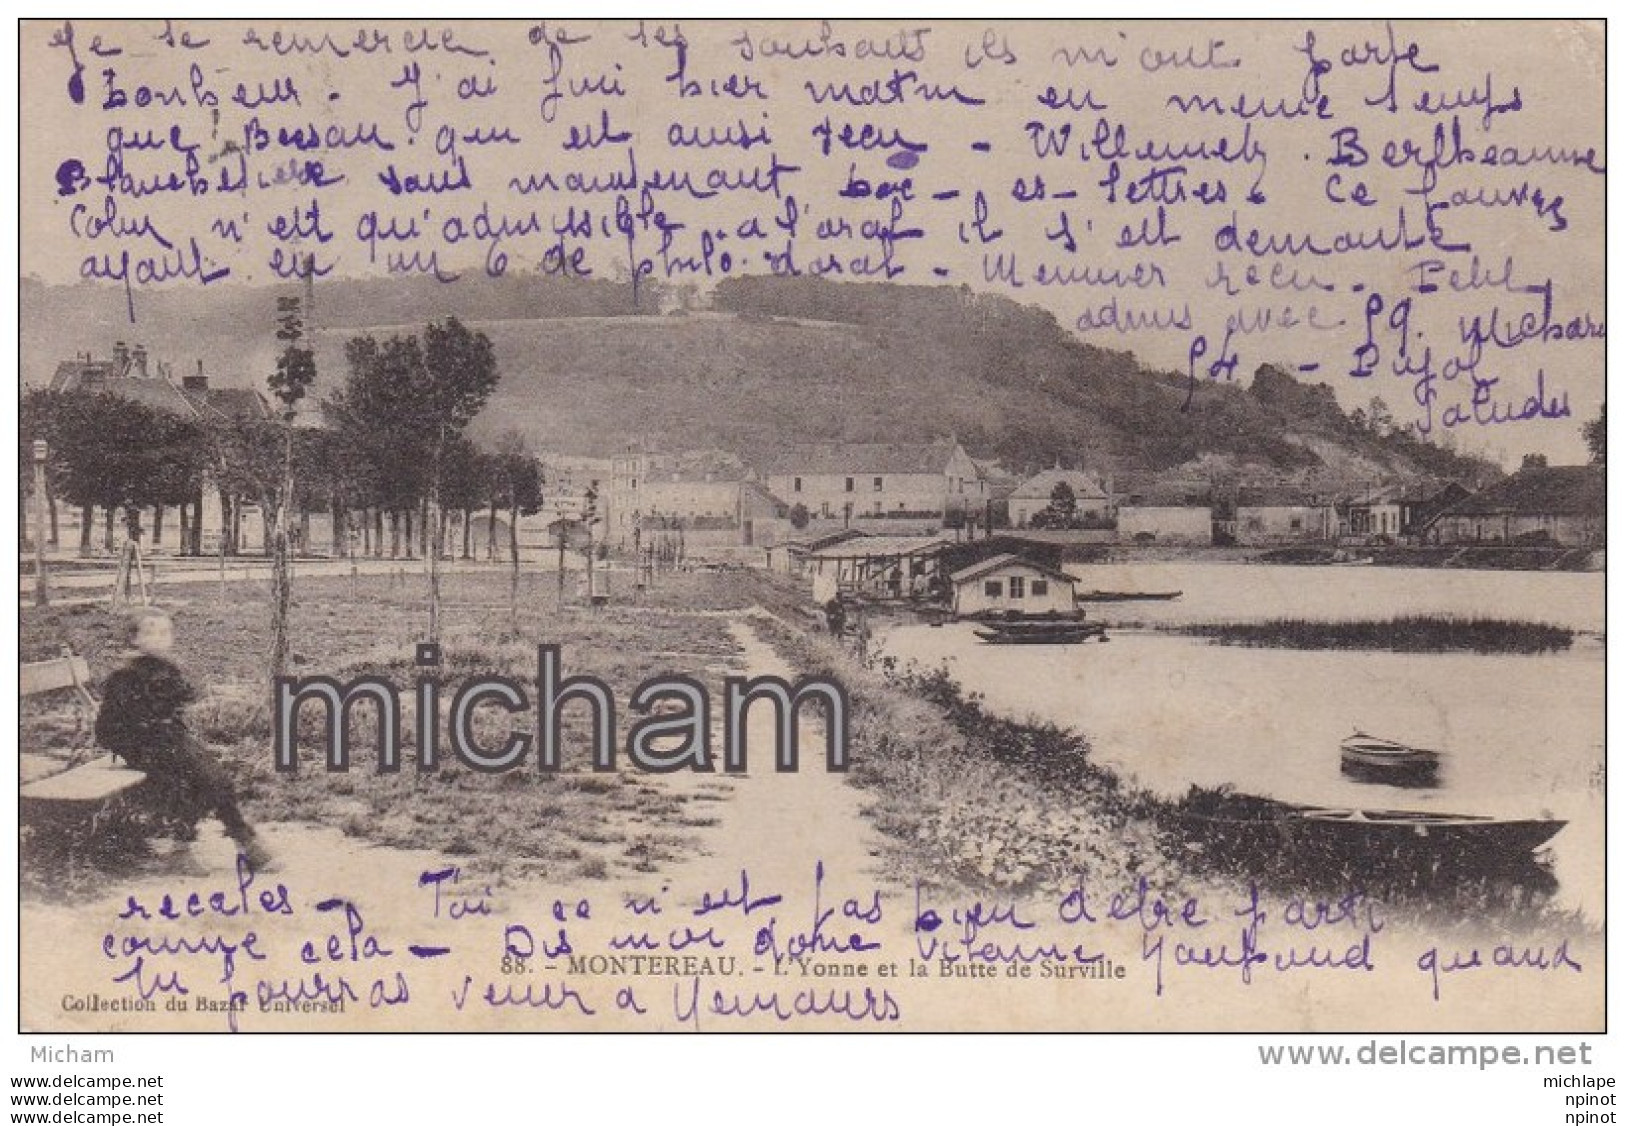 Je te remercie de tes souhaits ils m'ont porté
bonheur. J'ai fini hier matin en meme temps
que Bessau. qui est aussi recu - Willemetz. Bertheaume
sont maintenant bac-es-lettres. Ce pauvre
Colin n'est qu'admissible. a l'oral il s'est demonté
ayant eu un 6 de philo. d'oral - Meunier recu. Petit
admis avec 59. Michard
54 - Pujol
Saludes
recales - Toi ce n'est pas bien d'etre parti
comme cela - Dis moi donc vilaine quand
88. - MONTEREAU. - L'Yonne et la Butte de Surville
tu pourras venir a Nemours
Collection du Bazar Universel
micham
Micham
www.delcampe.net
www.delcampe.com
www.delcampe.com
www.delcampe.com
michlape
npinot
npinot